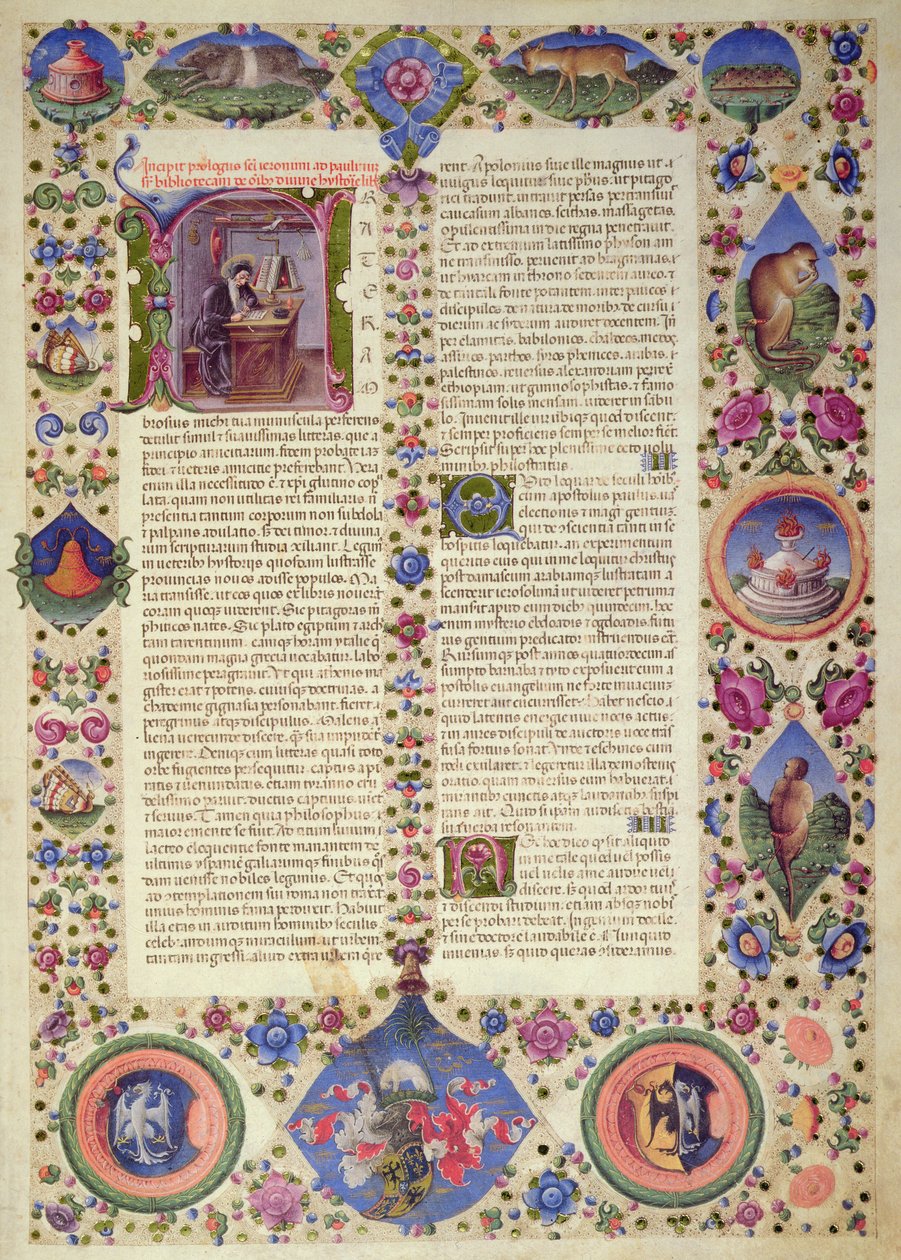 Incipit prologus sci ieronimi ad paulinuz
sr bibliotecam de oibȝ divine hystorie lib
F
R
A
T
E
R
A
M
brosius michi tua munuscula perferens
detulit simul et suavissimas litteras. que a
principio amicitiarum. fidem probate iaz
fidei et veteris amicitie preferebant. Vera
enim illa necessitudo est et xpi glutino cop
lata. quam non utilitas rei familiaris. non
presentia tantum corporum non subdola
et palpans adulatio. sed dei timor et divina
rum scripturarum studia conciliant. Legim
in veteribus hystoriis quosdam lustrasse
provincias novos adisse populos. Ma
ria transisse. ut eos quos ex libris noverant
coram quoque viderent. Sic pitagoras m
phiticos vates. Sic plato egiptum et arch
tam tarentinum. eamque horam ytalie que
quondam magna grecia vocabatur. labo
riosissime peragravit. Et qui athenis ma
gister erat et potens. cuiusque doctrinas. a
chademie gignasia personabant. fieret
peregrinus atque discipulus. Malens a
liena verecunde discere. quam sua impudent
ingerere. Denique cum litteras quasi toto
orbe fugientes persequitur. captus a pi
ratis et venundatus. etiam tyranno cru
delissimo paruit. ductus captivus. vict
et servus. Tamen quia philosophus.
maior emente se fuit. Ad titum livium
lacteo eloquentie fonte manantem de
ultimis yspanie galiarumque finibus qos
dam venisse nobiles legimus. Et quos
ad contemplationem sui roma non traxerat
unius hominis fama perduxit. Habuit
illa etas in auditum hominibus seculis.
celebrandumque miraculum ut urbem
tantam ingressi. aliud extra urbem qre
rent. Apolonius sive ille magnus ut a
vulgus loquitur sive phus. ut pitago
rici tradunt. intravit persas pertransivit
caucasum albanos. scithas. massagetas
opulentissima indie regna penetravit.
Et ad extremum latissimo physon am
ne transmisso. pervenit ad bragmanas. et
ut hyarcam in throno sedentem aureo. et
de tantali fonte potantem. inter paucos et
discipulos de natura de moribus de cursu
dierum ac syderum audiret docentem. In
per elamitas. babilonios. chaldeos. medos
assirios. parthos. syros phenices. arabas. et
palestinos. reversus alexandriam perrexit
ethiopiam. ut gignosophistas. et famo
sissimam solis mensam. videret in sabu
lo. Invenit ille vir ubique quod disceret.
et semper proficiens semper se melior fieret.
Scripsit super hoc plenissime octo volu
minibus philostratus.
Quid loquar de seculi hoibȝ
cum apostolus paulus vas
electionis et magister gentiuz.
qui de conscientia tanti in se
hospitis loquebatur. an experimentum
queritis eius qui in me loquitur christus
post damascum arabiamque lustratam a
scenderit ierosolimam ut videret petrum et
mansit apud eum diebus quindecim. hoc
enim mysterio ebdoadis et ogdoadis. futu
rus gentium predicator instruendus erat.
Rursumque post annos quatuordecim as
sumpto barnaba et tyto exposuerit cum a
postolis evangelium ne forte in vacuuz
curreret aut cucurrisset. Habet nescio
quid latentis energie vive vocis actus.
et in aures discipuli de auctoris voce trans
fusa fortius sonat. Unde et eschines cum
rodi exularet. et legeretur illa demostenis
oratio. quam adversus eum habuerat. mi
mirantibus cunctis atque laudantibus suspi
rans ait. Quid si ipsam audissetis bestia
sua verba resonantem.
Nec hoc dico quod sit aliquid
in me tale quod vel possis
vel velis a me audire vel
discere. sed quod ardor tuus
et discendi studium. etiam absque nobis
per se probari debeat. Ingenium docile.
et sine doctore laudabile est. Non quid
invenias. sed quid queras consideramus.